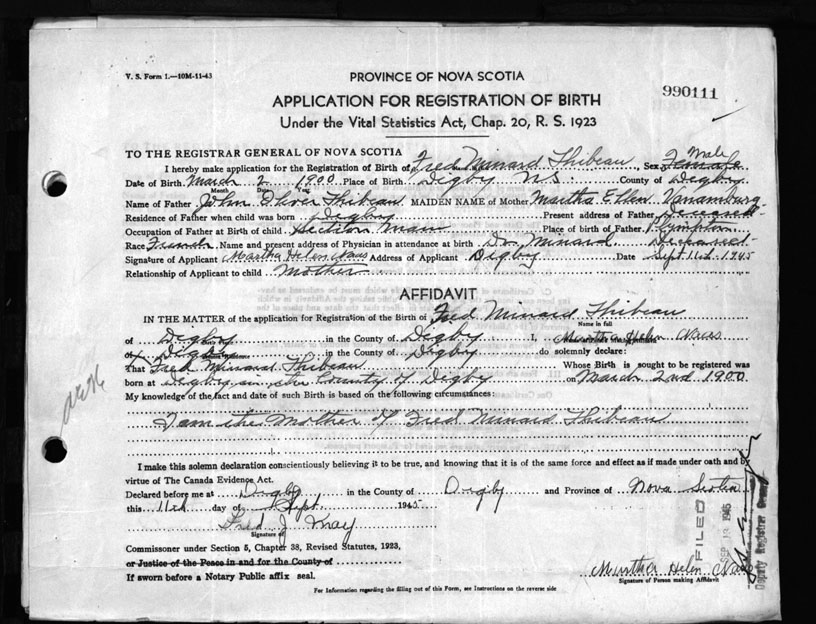 V. S. Form 1.—10M-11-43
PROVINCE OF NOVA SCOTIA
990111
APPLICATION FOR REGISTRATION OF BIRTH
Under the Vital Statistics Act, Chap. 20, R. S. 1923
TO THE REGISTRAR GENERAL OF NOVA SCOTIA
I hereby make application for the Registration of Birth of Fred Minard Thibeau Sex Male Female
Date of Birth March 2 1900 Place of Birth Digby N.S. County of Digby
Month Day Year
Name of Father John Oliver Thibeau MAIDEN NAME of Mother Martha Ellen Vanamburg
Residence of Father when child was born Digby Present address of Father Deceased
Occupation of Father at Birth of child Section Man Place of birth of Father Plympton
Race French Name and present address of Physician in attendance at birth Dr. Minard Deceased
Signature of Applicant Martha Helen Address of Applicant Digby Date Sept 11th 1945
Relationship of Applicant to child Mother
AFFIDAVIT
IN THE MATTER of the application for Registration of the Birth of Fred Minard Thibeau
Name in full
of Digby in the County of Digby I, Martha Helen
of Digby in the County of Digby do solemnly declare:
That Fred Minard Thibeau Whose Birth is sought to be registered was
born at Digby in the County of Digby on March 2nd 1900
My knowledge of the fact and date of such Birth is based on the following circumstances:
I am the Mother of Fred Minard Thibeau
I make this solemn declaration conscientiously believing it to be true, and knowing that it is of the same force and effect as if made under oath and by
virtue of The Canada Evidence Act.
Declared before me at Digby in the County of Digby and Province of Nova Scotia
this 11th day of Sept. 1945
Fred J. May
Signature of
Commissoner under Section 5, Chapter 38, Revised Statutes, 1923,
or Justice of the Peace in and for the County of
If sworn before a Notary Public affix seal.
Martha Helen
Signature of Person making Affidavit
FILED
SEP 13 1945
Deputy Registrar General
For Information regarding the filling out of this Form, see Instructions on the reverse side